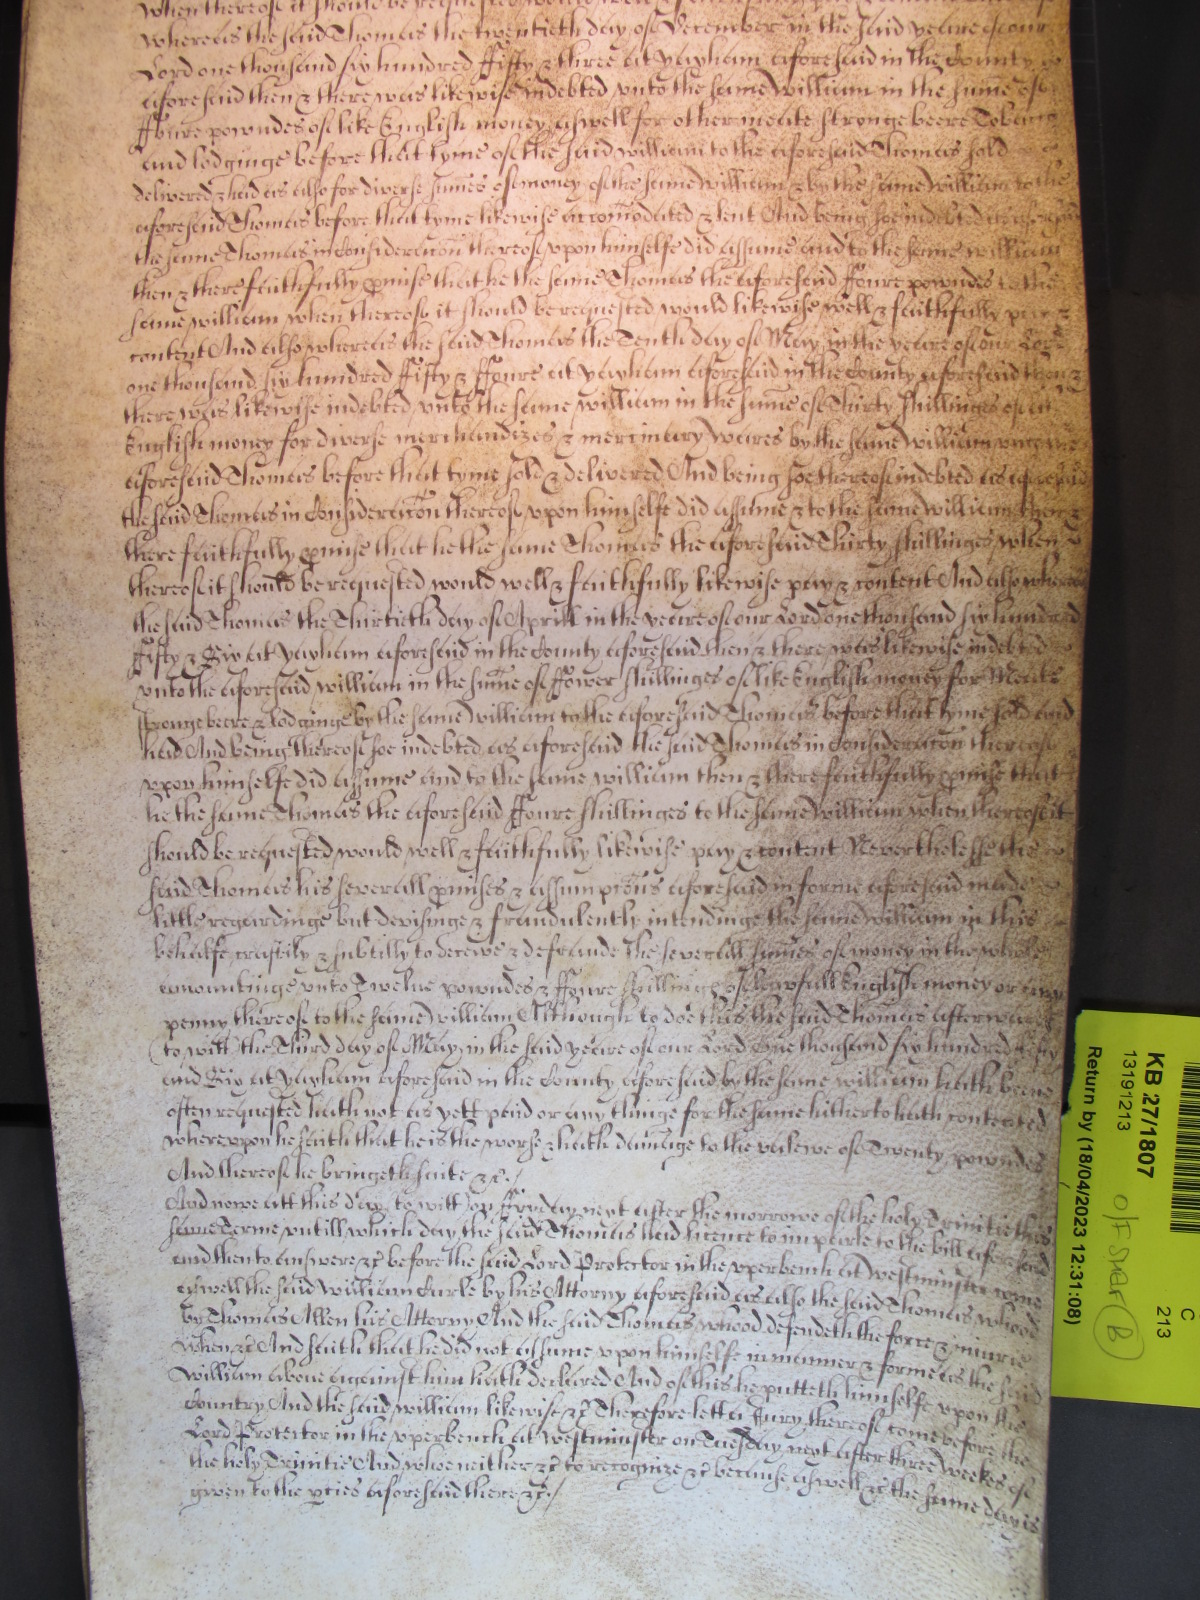 when thereof it should be requested would
whereas the said Thomas the twentieth day of December in the said yeare of our
Lord one thousand six hundred ffifty & three at yaxham aforesaid in the County
aforesaid then & there was likewise indebted vnto the same william in the sume of
ffoure powndes of like English money aswell for other meate stronge beere Tobacco
and lodginge before that tyme of the said william to the aforesaid Thomas sold
delivered & had as also for diverse sumes of money of the same william & by the same william to the
aforesaid Thomas before that tyme likewise accomodated & lent And being soe indebted
the same Thomas in Consideracon thereof vpon himselfe did assume and to the same william
then & there faithfully pmise that he the same Thomas the aforesaid ffoure powndes to the
same william when thereof it should be requested would likewise well & faithfully pay &
content And also whereas the said Thomas the Tenth day of May in the yeare of our Lord
one thousand six hundred ffifty & ffoure at yaxham aforesaid in the County aforesaid then &
there was likewise indebted vnto the same william in the sume of Thirty shillinges of
English money for diverse merchandizes & mercinary wares by the same william
aforesaid Thomas before that tyme sold & delivered And being soe thereof indebted as aforesaid
the said Thomas in Consideracon thereof vpon himselfe did assume & to the same william then &
there faithfully pmise that he the same Thomas the aforesaid Thirty shillinges when
thereof it should be requested would well & faithfully likewise pay & content And also whereas
the said Thomas the Thirtieth day of Aprill in the yeare of our Lord one thousand six hundred
ffifty & Six at yaxham aforesaid in the County aforesaid then & there was likewise indebted
vnto the aforesaid william in the sume of ffower shillinges of like English money for Meate
stronge beere & lodginge by the same william to the aforesaid Thomas before that tyme sold and
had And being thereof soe indebted as aforesaid the said Thomas in Consideracon thereof
vpon himselfe did assume and to the same william then & there faithfully pmise that
he the same Thomas the aforesaid ffoure shillinges to the same william when thereof it
should be requested would well & faithfully likewise pay & content Neverthelesse the
said Thomas his severall pmises & assumpcons aforesaid in forme aforesaid made
little regardinge but devisinge & fraudulently intendinge the same william in this
behalfe craftily & subtilly to deceive & defraude the severall sumes of money in the whole
amountinge vnto Twelve powndes & ffoure shillinges of lawfull English money or any
penny thereof to the same william Although to doe this the said Thomas afterwards
(to witt) the Third day of May in the said yeare of our Lord One thousand six hundred ffifty
and Six at yaxham aforesaid in the County aforesaid by the same william hath beene
often requested hath not as yett paid or any thinge for the same hitherto hath contented
wherevpon he saith that he is the worse & hath damage to the valewe of Twenty powndes
And thereof he bringeth suite &c./
And nowe att this day to witt on ffryday next after the morrowe of the holy Trinitie this
same Terme vntill which day the said Thomas had licence to imparle to the bill aforesaid
and then to answere &c before the said Lord Protector in the vper bench at westminster come
aswell the said william Curle by his Attorny aforesaid as also the said Thomas whood
by Thomas Allen his Attorny And the said Thomas whood defendeth the force & iniurie
when &c And saith that he did not assume vpon himselfe in manner & forme as the said
william above against him hath declared And of this he putteth himselfe vpon the
Country And the said william likewise &c Therefore lett a Jury thereof come before the
Lord Protector in the vper bench at westminster on Tuesday next after three weekes of
the holy Trinitie And whoe neither &c to recognize &c because aswell &c the same day is
given to the pties aforesaid there &c./
KB 27/1807
13191213
Return by (18/04/2023 12:31:08)
C
213
B